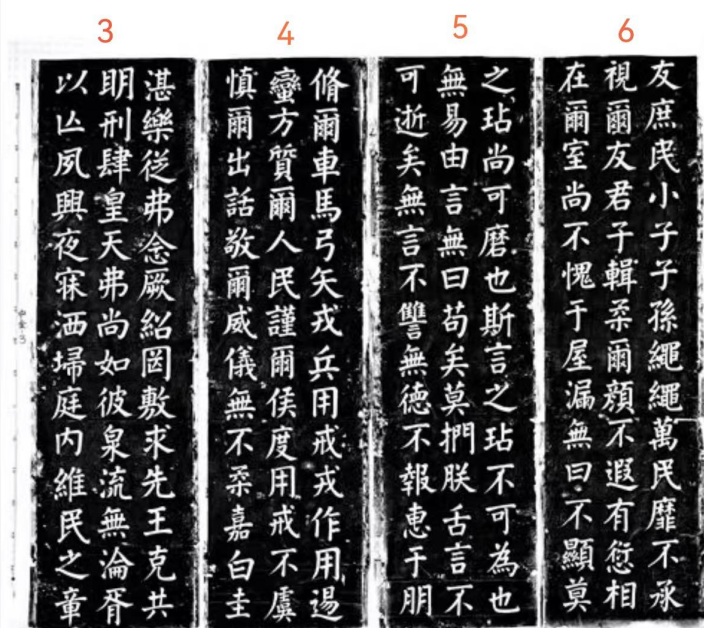 3
湛樂從弗念厥紹罔敷求先王克共
明刑肆皇天弗尚如彼泉流無淪胥
以亡夙興夜寐洒埽庭内維民之章
4
脩爾車馬弓矢戎兵用戒戎作用逷
蠻方質爾人民謹爾侯度用戒不虞
慎爾出話敬爾威儀無不柔嘉白圭
5
之玷尚可磨也斯言之玷不可為也
無易由言無曰苟矣莫捫朕舌言不
可逝矣無言不讐無德不報惠于朋
6
友庶民小子子孫繩繩萬民靡不承
視爾友君子輯柔爾顏不遐有愆相
在爾室尚不愧于屋漏無曰不顯莫